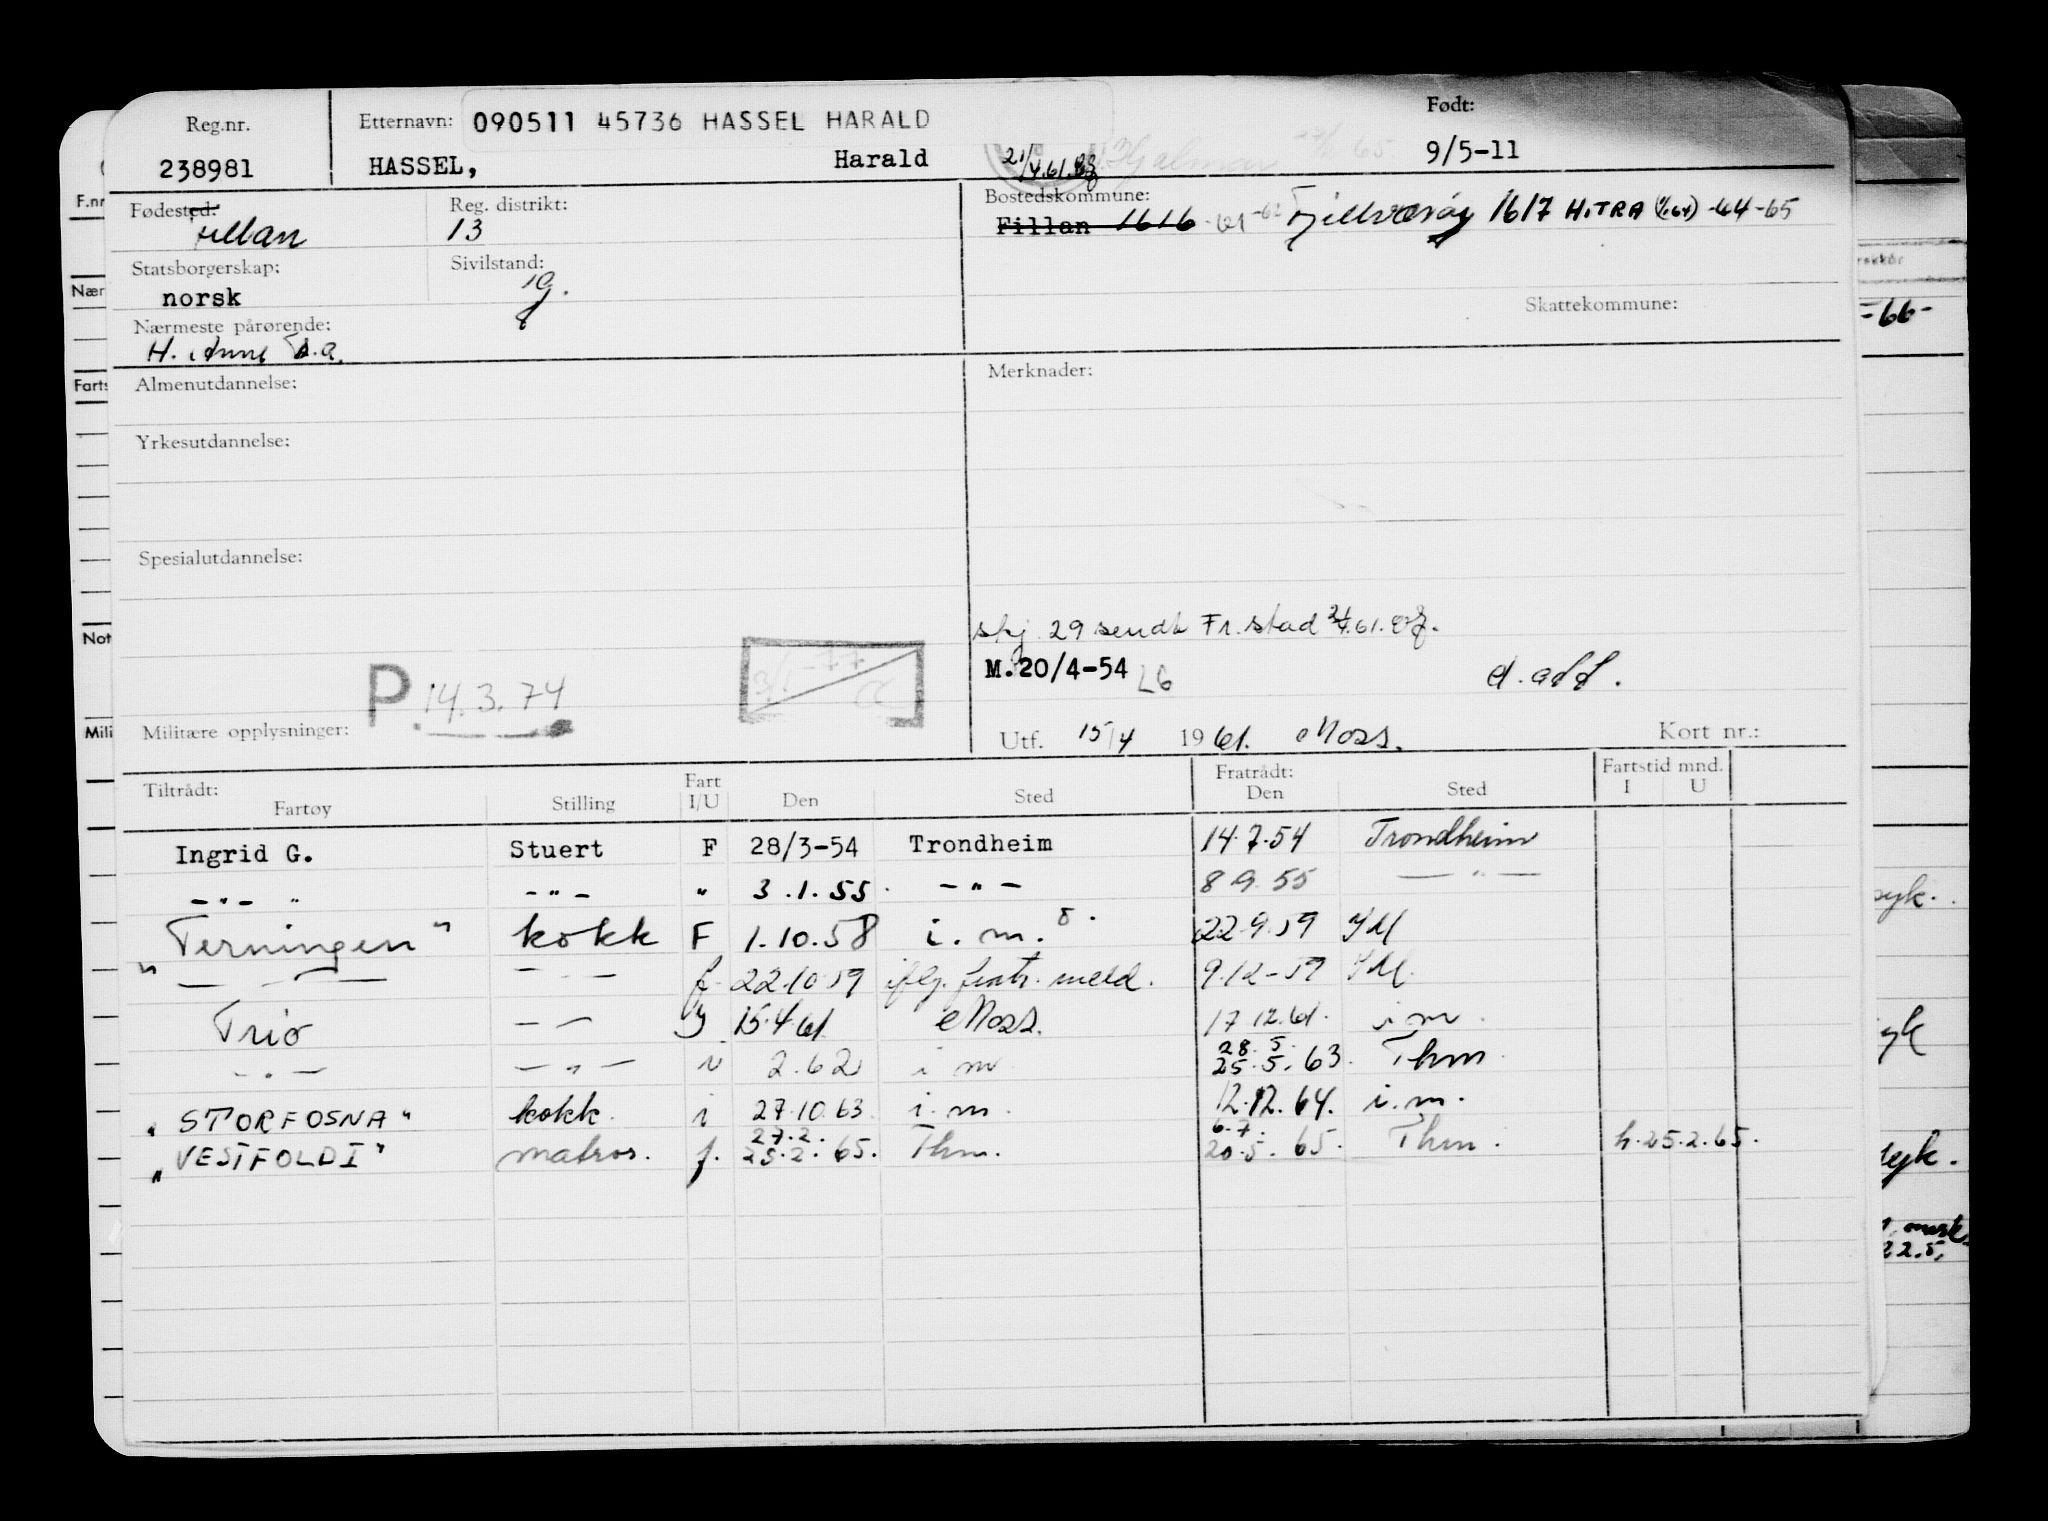 Reg.nr. Etternavn: 090511 45736 HASSEL HARALD Født:
238981 HASSEL, Harald 21/4.61. 9/5-11
Fødested: Reg. distrikt: Bostedskommune:
Fillan 13 Fillan 1616 -61 -62 Fjellværøy 1617 HITRA (1/1.64) -64-65
Statsborgerskap: Sivilstand:
norsk g. Skattekommune:
Nærmeste pårørende:
H.
Almenutdannelse: Merknader:
Yrkesutdannelse:
Spesialutdannelse:
skj 29 sendt Fr.stad 21/4.61.
M.20/4-54 LG
P. 14.3.74 3/1-77
Militære opplysninger: Utf. 15/4 1961. Moss. Kort nr.:
Tiltrådt: Fart Fratrådt: Fartstid mnd.
Fartøy Stilling I/U Den Sted Den Sted I U
Ingrid G. Stuert F 28/3-54 Trondheim 14.7.54 Trondheim
-"- " -"- " 3.1.55. -"- 8 9. 55 -"-
"Terningen" kokk F 1.10.58 i. m. 22.9.59
" -"- -"- f 22.10.59 iflg. fratr. meld. 9.12-59
Trio -"- I 15.4 61 Moss. 17 12.61. i m.
-"- -"- i 2.62 i m 28. 5. 25.5. 63. Thm
"STORFOSNA" kokk. i 27.10.63 i.m. 12.12.64. i.m.
"VESTFOLD I" matros. f. 27.2. 25.2. 65. Thm. 6.7. 20.5. 65. Thm. h.25.2.65.
F.nr
Nær
Farts
Not
Mili
-66-
22.5.